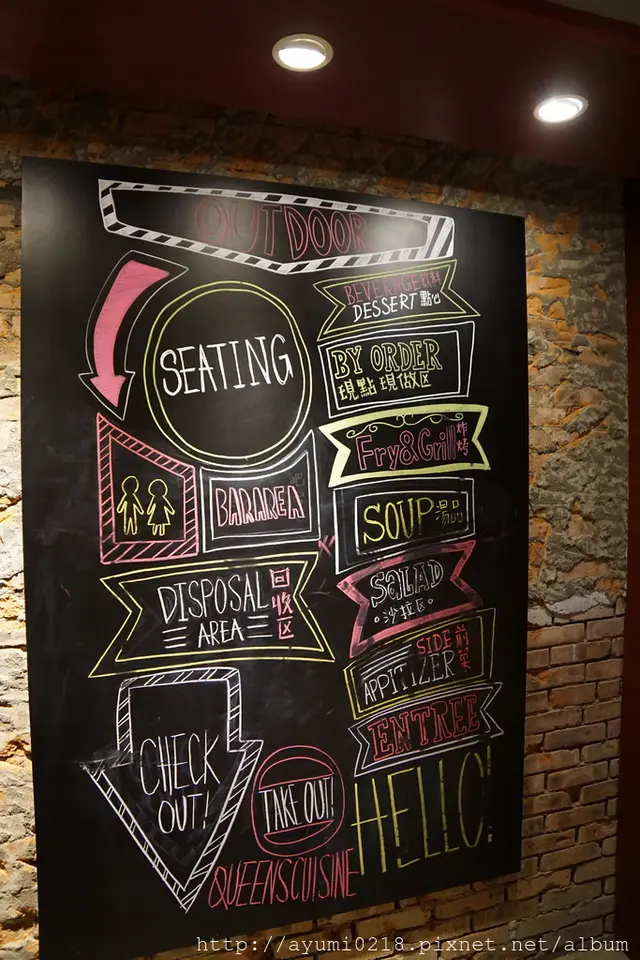 OUTDOOR
SEATING
BEVERAGE 飲料
DESSERT 點心
BY ORDER
現點現做区
Fry&Grill 炸烤
BARAREA 吧
SOUP 湯品
DISPOSAL AREA 回收区
SALAD
沙拉区
SIDE
APPITIZER 前菜
ENTREE
CHECK
OUT!
TAKE OUT!
HELLO!
QUEENSCUISINE
http://ayumi0218.pixnet.net/album